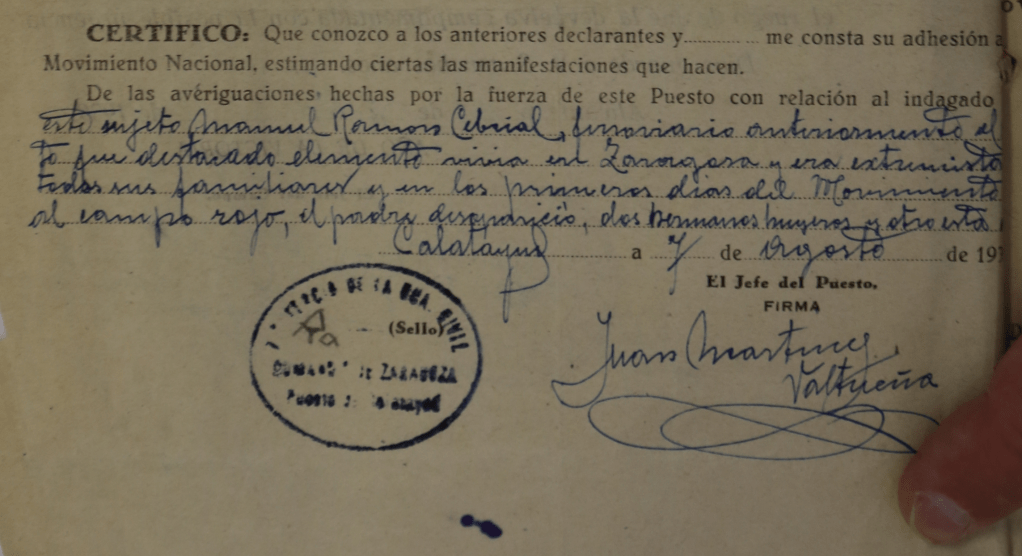 CERTIFICO: Que conozco a los anteriores declarantes y.................. me consta su adhesión a
Movimiento Nacional, estimando ciertas las manifestaciones que hacen.
De las averiguaciones hechas por la fuerza de este Puesto con relación al indagado
este sujeto Manuel Ramos Cebrial, ferroviario anteriormente al
to fue destacado elemento vivia en Zaragosa y era extremista
todos sus familiares y en los primeros dias del Movimiento
al campo rojo, el padre desaparició, dos hermanos huyeros y otro está
Calatayud a 7 de Agosto de 193
El Jefe del Puesto,
FIRMA
(Sello)
DE LA GUA. CIVIL
DE ZARAGOZA
Juan Martinez
Valtueña